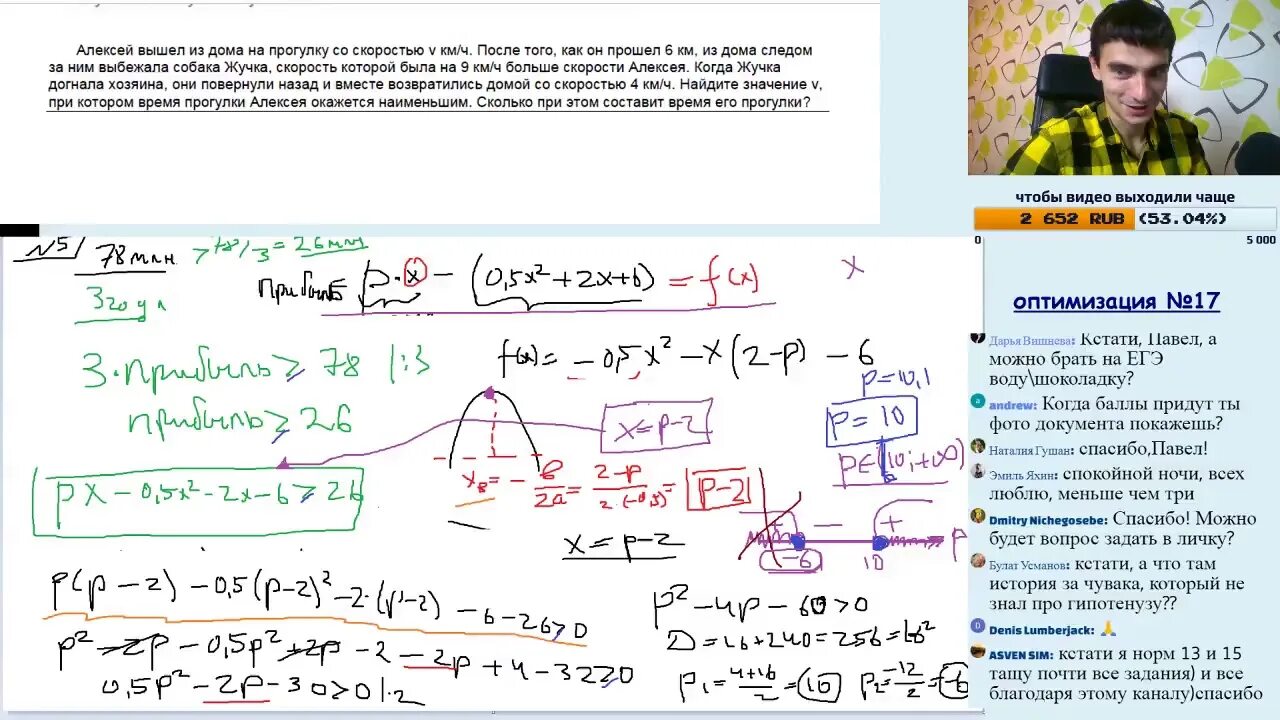 Алексей вышел из дома на прогулку со скоростью v км/ч. После того, как он прошел 6 км, из дома следом
за ним выбежала собака Жучка, скорость которой была на 9 км/ч больше скорости Алексея. Когда Жучка
догнала хозяина, они повернули назад и вместе возвратились домой со скоростью 4 км/ч. Найдите значение v,
при котором время прогулки Алексея окажется наименьшим. Сколько при этом составит время его прогулки?
чтобы видео выходили чаще
2 652 RUB (53.04%)
0 5 000
№5 78 млн. > 78/3 = 26 млн
3 года
Прибыль = p·x - (0,5x² + 2x + 6) = f(x) x
f(x) = -0,5x² - x(2-p) - 6
3·прибыль ≥ 78 |:3
прибыль ≥ 26
p=10,1
p = 10
p∈(10; +∞)
x = p-2
px - 0,5x² - 2x - 6 ≥ 26
x_в = - b/2a = 2-p/2·(-0,5) = p-2
x = p-2
+ - +
-6 10 p
p(p-2) - 0,5(p-2)² - 2·(p-2) - 6 - 26 ≥ 0
p² - 2p - 0,5p² + 2p - 2 - 2p + 4 - 32 ≥ 0
0,5p² - 2p - 30 > 0 |·2
p² - 4p - 60 > 0
D = 16 + 240 = 256 = 16²
p₁ = 4+16/2 = 10 p₂ = -12/2 = -6
оптимизация №17
Дарья Вишнева: Кстати, Павел, а
можно брать на ЕГЭ
воду\шоколадку?
andrew: Когда баллы придут ты
фото документа покажешь?
Наталия Гушан: спасибо,Павел!
Эмиль Яхин: спокойной ночи, всех
люблю, меньше чем три
Dmitry Nichegosebe: Спасибо! Можно
будет вопрос задать в личку?
Булат Усманов: кстати, а что там
история за чувака, который не
знал про гипотенузу??
Denis Lumberjack: 🙏
ASVEN SIM: кстати я норм 13 и 15
тащу почти все задания) и все
благодаря этому каналу)спасибо